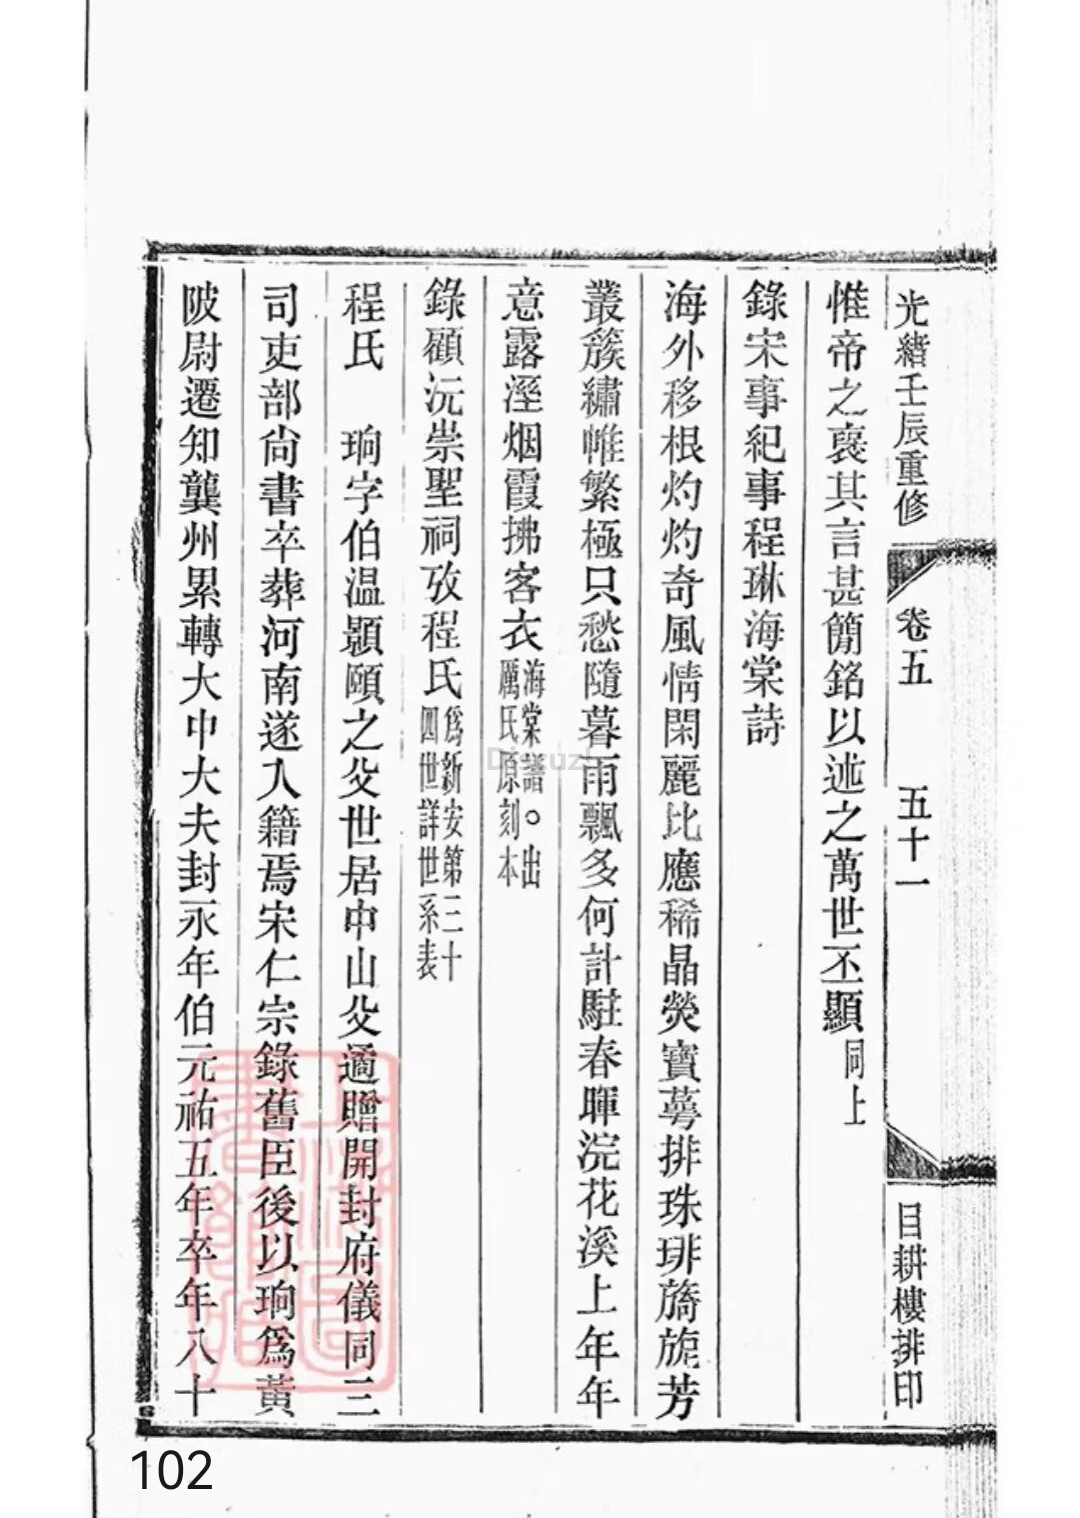 光緒壬辰重修
卷五
五十一
目耕樓排印
惟帝之褒其言甚簡銘以述之萬世丕顯同上
錄宋事紀事程琳海棠詩
海外移根灼灼奇風情閑麗比應稀晶熒寶萼排珠琲旖旎芳
叢簇繡帷繁極只愁隨暮雨飄多何計駐春暉浣花溪上年年
意露溼烟霞拂客衣海棠譜○出
厲氏原刻本
錄顧沅崇聖祠攷程氏爲新安第三十
四世詳世系表
程氏 珦字伯温顥頤之父世居中山父遹贈開封府儀同三
司吏部尚書卒葬河南遂入籍焉宋仁宗錄舊臣後以珦爲黃
陂尉遷知龔州累轉大中大夫封永年伯元祐五年卒年八十
102